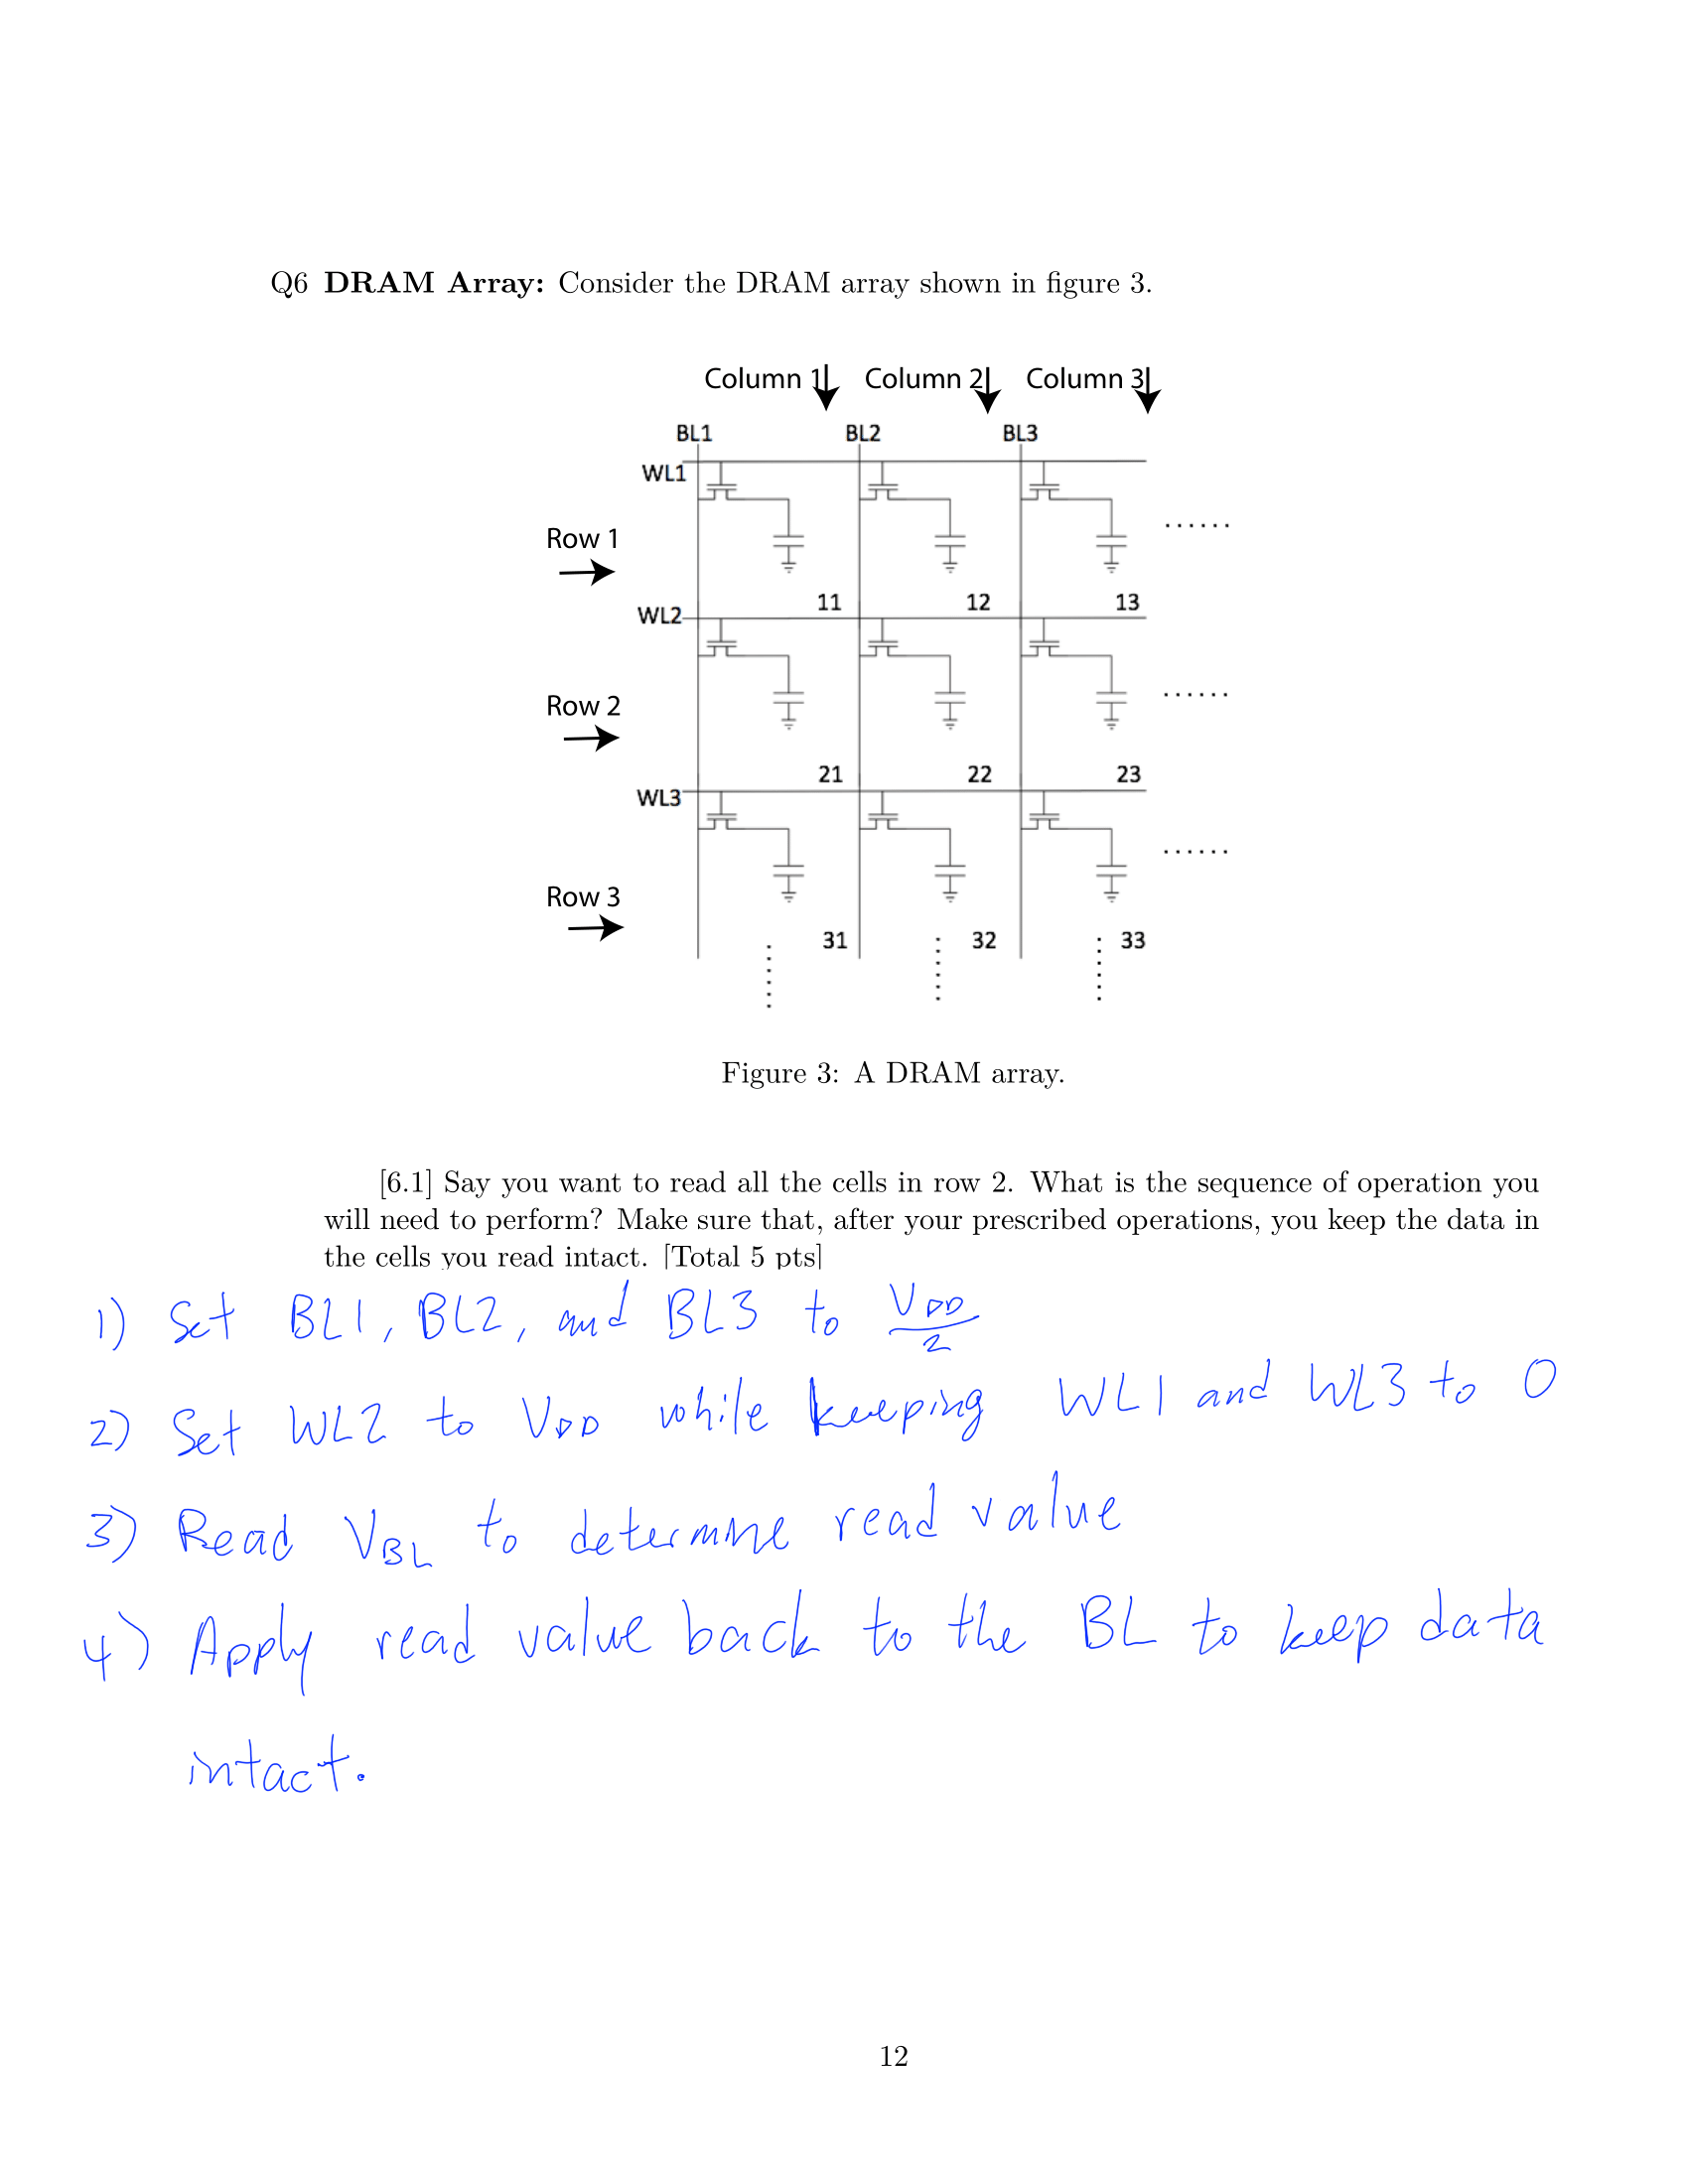 Q6 DRAM Array: Consider the DRAM array shown in figure 3.
Column 1 Column 2 Column 3
BL1 BL2 BL3
WL1
Row 1
11 12 13
WL2
Row 2
21 22 23
WL3
Row 3
31 32 33
Figure 3: A DRAM array.
[6.1] Say you want to read all the cells in row 2. What is the sequence of operation you
will need to perform? Make sure that, after your prescribed operations, you keep the data in
the cells you read intact. [Total 5 pts]
1) Set BL1, BL2, and BL3 to VDD/2
2) Set WL2 to VDD while keeping WL1 and WL3 to 0
3) Read VBL to determine read value
4) Apply read value back to the BL to keep data
intact.
12